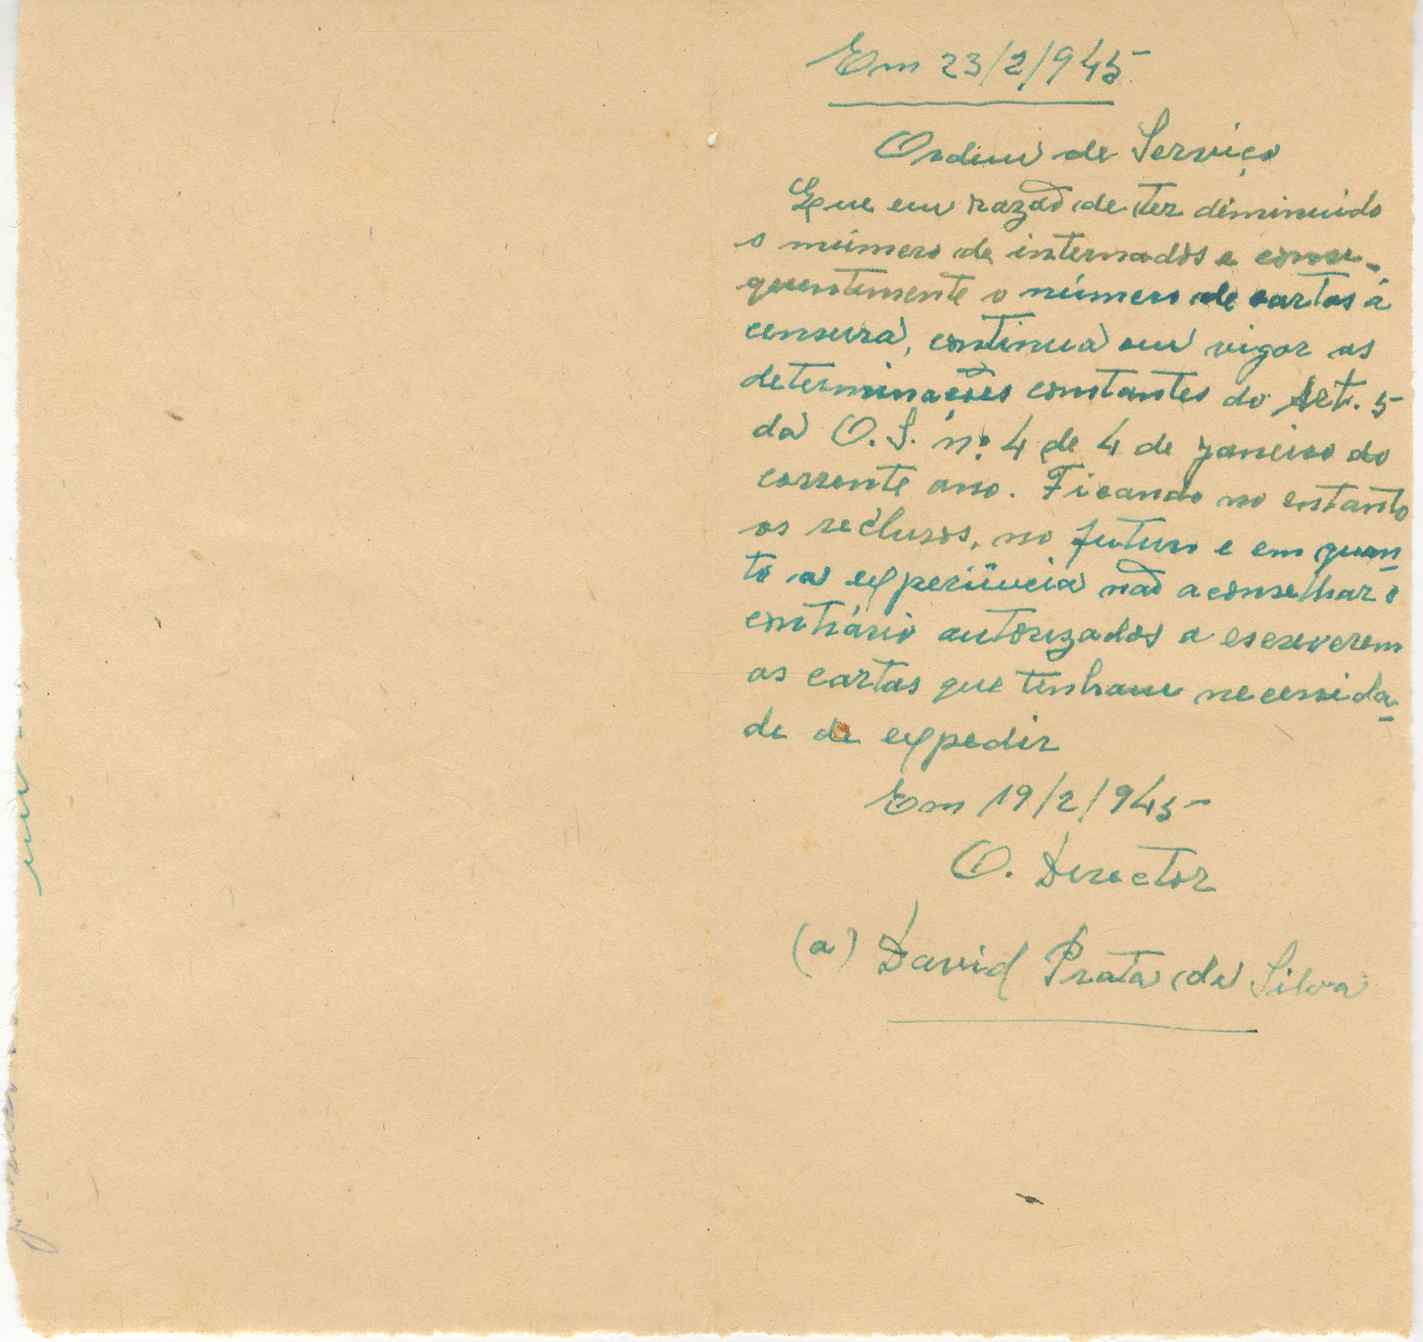 Em 23/2/945
Ordem de Serviço
Que em razão de ter diminuido
o número de internados e conse-
quentemente o número de cartas á
censura, continua em vigor as
determinações constantes do Art. 5
da O.S. nº 4 de 4 de janeiro do
corrente ano. Ficando no entanto
os reclusos, no futuro e em quan-
to a experiência não aconselhar o
contrário autorizados a escreverem
as cartas que tenham necessida-
de de expedir
Em 19/2/945
O. Director
(a) David Prata da Silva